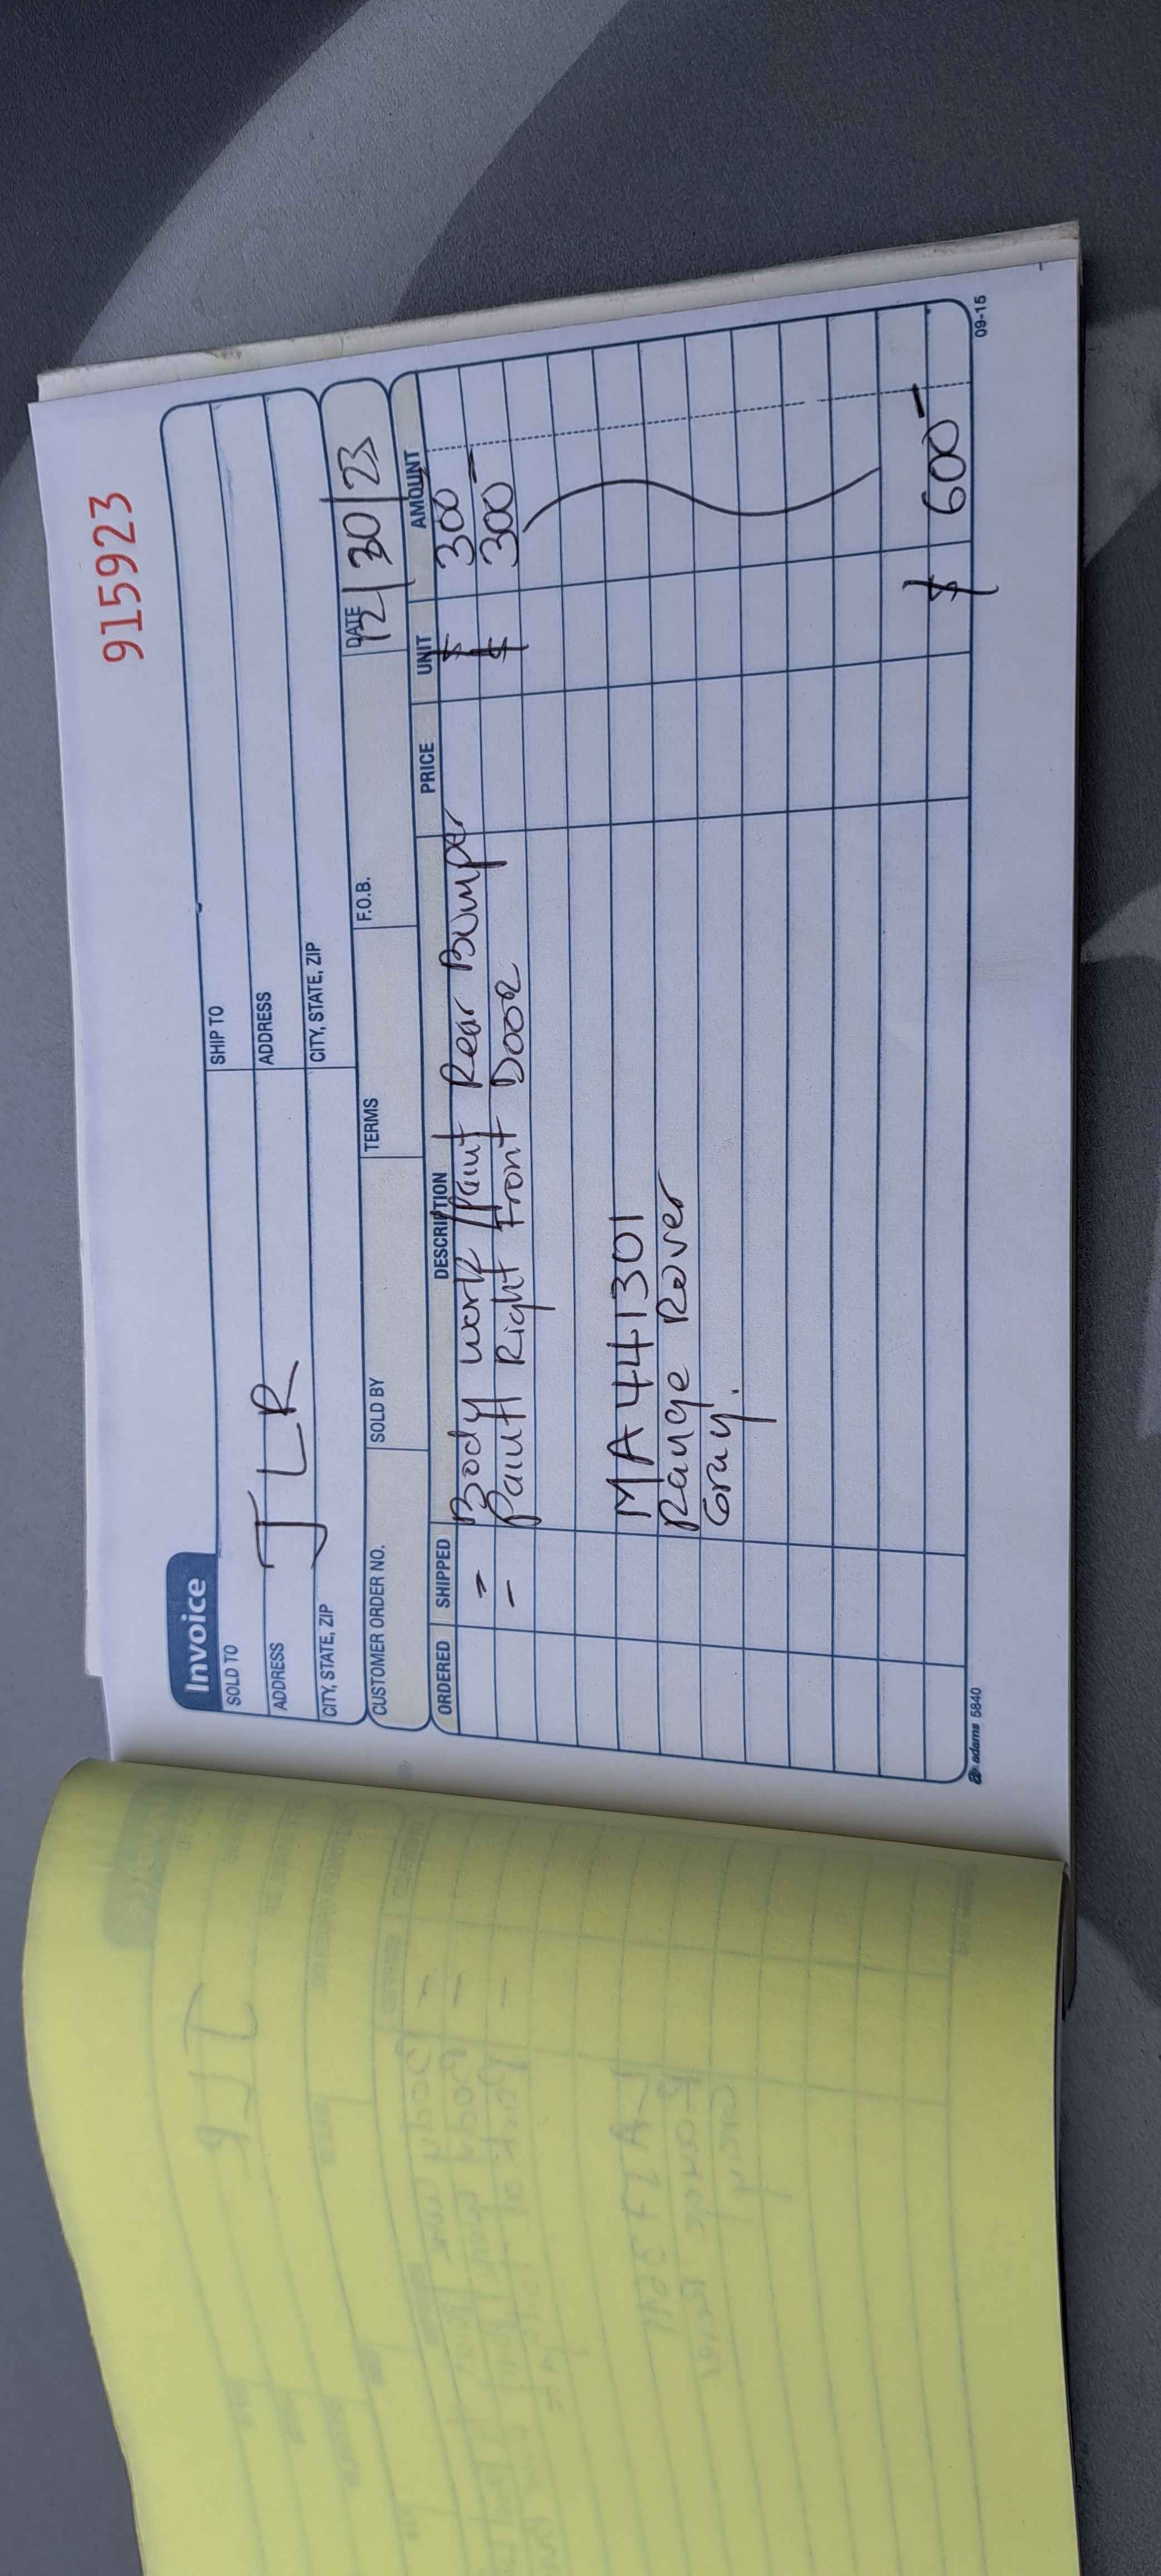 915923
Invoice
SOLD TO
SHIP TO
ADDRESS
ADDRESS
JLR
CITY, STATE, ZIP
CITY, STATE, ZIP
CUSTOMER ORDER NO. SOLD BY TERMS F.O.B. DATE
12/30/23
ORDERED SHIPPED DESCRIPTION PRICE UNIT AMOUNT
- Body work/Paint Rear Bumper $ 300-
- Paint Right Front Door $ 300-
MA441301
Range Rover
Gray.
$ 600-
adams 5840
09-15